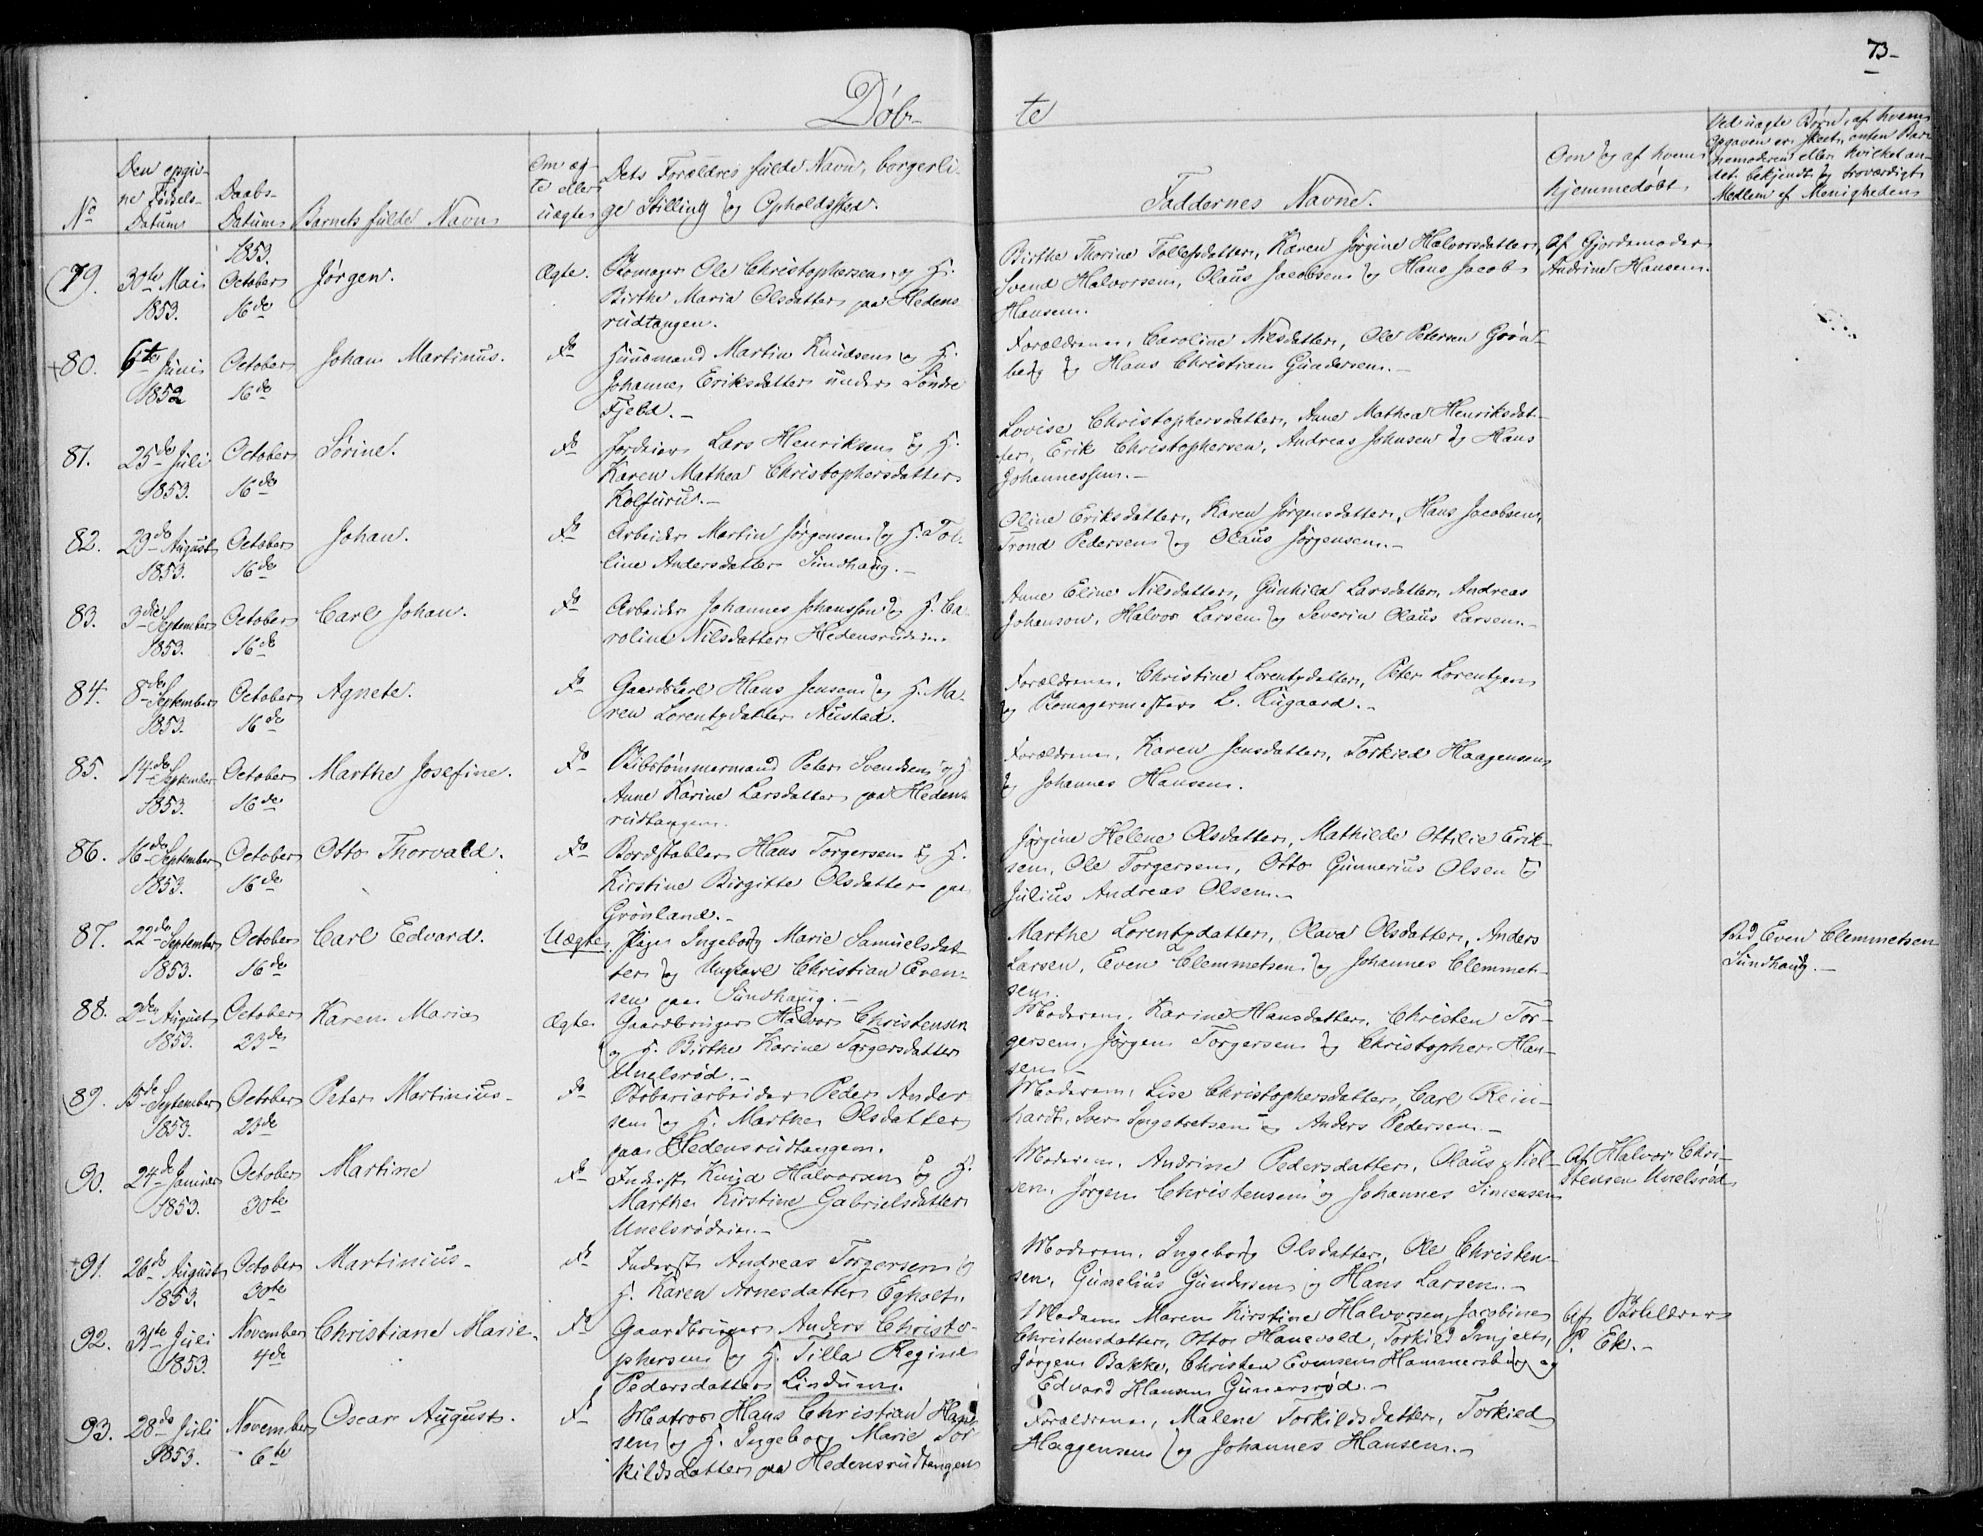 73-
Døb-
te
No
Den opgiv-
ne Fødsels-
Datum
Daabs-
Datum
Barnets fulde Navn
Om æg-
te eller
uægte
Dets Forældres fulde Navn, borgerli-
ge Stilling og Opholdssted.
Faddernes Navne.
Om og af hvem
hjemmedøbt
Ved uægte Børn, af hvem
Opgaven er skeet, enten Bar-
nemoderen eller hvilket an-
det bekjendt og troværdigt
Medlem af Menigheden
79.
30te Mai
1853.
1853.
October
16de
Jørgen.
Ægte.
Skomager Ole Christophersen og H.
Birthe Maria Olsdatter paa Hedens-
rudtangen.
Birthe Thorine Tollefsdatter, Karen Jørgine Halvorsdatter,
Svend Halvorsen, Olaus Jacobsen og Hans Jacob
Hansen.
Af Gjordemoder
Andrine Hansen.
80.
6te Juni
1852
October
16de
Johan Martinus.
Do
Huusmand Martin Knudsen og H.
Johanne Eriksdatter under Søndre
Fjeld.-
Forældrene, Caroline Nilsdatter, Ole Petersen Grøn-
berg og Hans Christian Gundersen.-
81.
25de Juli
1853.
October
16de
Sørine.
Do
Jordeier Lars Henriksen og H.
Karen Mathea Christophersdatter
Kolfurus.-
Lovise Christophersdatter, Anne Mathea Henriksdat-
ter, Erik Christophersen, Andreas Johnsen og Hans
Johannessen.-
82.
29de August
1853.
October
16de
Johan.
Do
Arbeider Martin Jørgensen og H. Tol-
line Andersdatter Sundhaug.-
Oline Eriksdatter, Karen Jørgensdatter, Hans Jacobsen,
Trond Pedersen og Olaus Jørgensen.-
83.
3die September
1853.
October
16de
Carl Johan.
Do
Arbeider Johannes Johansson og H. Ca-
roline Nilsdatter Hedensrudein.
Anne Eline Nilsdatter, Gunhild Larsdatter, Andreas
Johanson, Halvor Larsen og Severin Olaus Larsen.-
84.
8de September
1853.
October
16de
Agnete.
Do
Gaardskarl Hans Jensen og H. Ma-
ren Lorentzdatter Neustad.
Forældrene, Christine Lorentzdatter, Peter Lorentzen
og Skomagermester L. Rugaard.-
85.
14de September
1853.
October
16de
Marthe Josefine.
Do
Skibstømmermand Peter Svendsen og H.
Anne Karine Larsdatter paa Hedens-
rudtangen.
Forældrene, Karen Jensdatter, Torkied Haagensen
og Johannes Hansen.
86.
16de September
1853.
October
16de
Otto Thorvald.
Do
Bordstabler Hans Torgersen og H.
Kirstine Birgitte Olsdatter paa
Grønland.-
Jørgine Helene Olsdatter, Mathilde Ottilie Erik-
sen, Ole Torgersen, Otto Gunnerius Olsen og
Julius Andreas Olsen.-
87.
22de September
1853.
October
16de
Carl Edvard.
Uægte
Pige Ingeborg Marie Samuelsdat-
ter og Ungkarl Christian Even-
sen paa Sundhaug.-
Marthe Lorentzdatter, Olava Olsdatter, Anders
Larsen, Even Clemmetsen og Johannes Clemmet-
sen.
Ved Even Clemmetsen
Sundhaug.-
88.
2den August
1853.
October
23de
Karen Maria
Ægte
Gaardbruger Halvor Christensen
og H. Birthe Karine Torgersdatter
Unelsrød.-
Moderen, Karine Hansdatter, Christen Tor-
gersen, Jørgen Torgersen og Christopher Han-
sen.-
89.
15de September
1853.
October
23de
Peter Martinius-
Do
Støberiarbeider Peder Ander-
sen og H. Marthe Olsdatter
paa Hedensrudtangen.
Moderen, Lise Christophersdatter, Carl Rein-
hardt, Iver Ingebretsen og Anders Pedersen.-
90.
24de Januar
1853.
October
30te
Martine
Do
Inderst Knud Halvorsen og H.
Marthe Kirstine Gabrielsdatter
Unelsrødein.-
Moderen, Andrine Pedersdatter, Olaus Niel-
sen, Jørgen Christensen og Johannes Simensen
Af Halvor Chri-
stensen Unelsrød
91.
26de August
1853.
October
30te
Martinius-
Do
Inderst Andreas Torgersen og
H. Karen Arnesdatter Egholt.
Moderen, Ingeborg Olsdatter, Ole Christen-
sen, Gunelius Gundersen og Hans Larsen.-
92.
31te Juli
1853.
November
4de
Christiane Marie-
Do
Gaardbruger Anders Christo-
phersen og H. Tilla Regine
Pedersdatter Lindum.
Madam Maren Kirstine Halvorsen, Jacobine
Christensdatter, Otto Hanevold, Torkild Imjelt,
Jørgen Bakke, Christen Evensen Hammersborg og
Edvard Hansen Gunersrød.-
Af Skolelærer
P. Ek.-
93.
28de Juli
1853.
November
6te
Oscar August.
Do
Matros Hans Christian Hagen-
sen og H. Ingeborg Marie Tor-
kildsdatter paa Hedensrudtangen
Forældrene, Malene Torkildsdatter, Torkied
Haagensen og Johannes Hansen.-